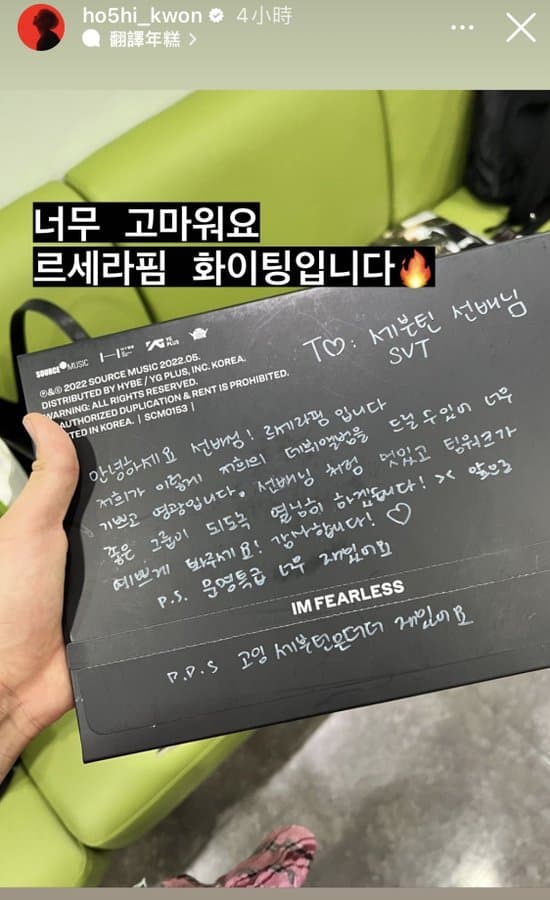 ho5hi_kwon 4小時
翻譯年糕 >
너무 고마워요
르세라핌 화이팅입니다🔥
SOURCE MUSIC YG PLUS
℗&© 2022 SOURCE MUSIC 2022.05.
DISTRIBUTED BY HYBE / YG PLUS, INC. KOREA.
WARNING: ALL RIGHTS RESERVED.
AUTHORIZED DUPLICATION & RENT IS PROHIBITED.
TED IN KOREA. | SCM0153 |
TO♡: 세븐틴 선배님
SVT
안녕하세요 선배님! 르세라핌 입니다
저희가 이렇게 저희의 데뷔앨범을 드릴 수 있어 너무
기쁘고 영광입니다. 선배님 처럼 멋있고 팀워크가
좋은 그룹이 되도록 열심히 하겠습니다! >< 앞으로
예쁘게 봐주세요! 감사합니다! ♡
P.S. 문명특급 너무 재밌어요
IM FEARLESS
P.P.S 고잉 세븐틴은더더 재밌어요